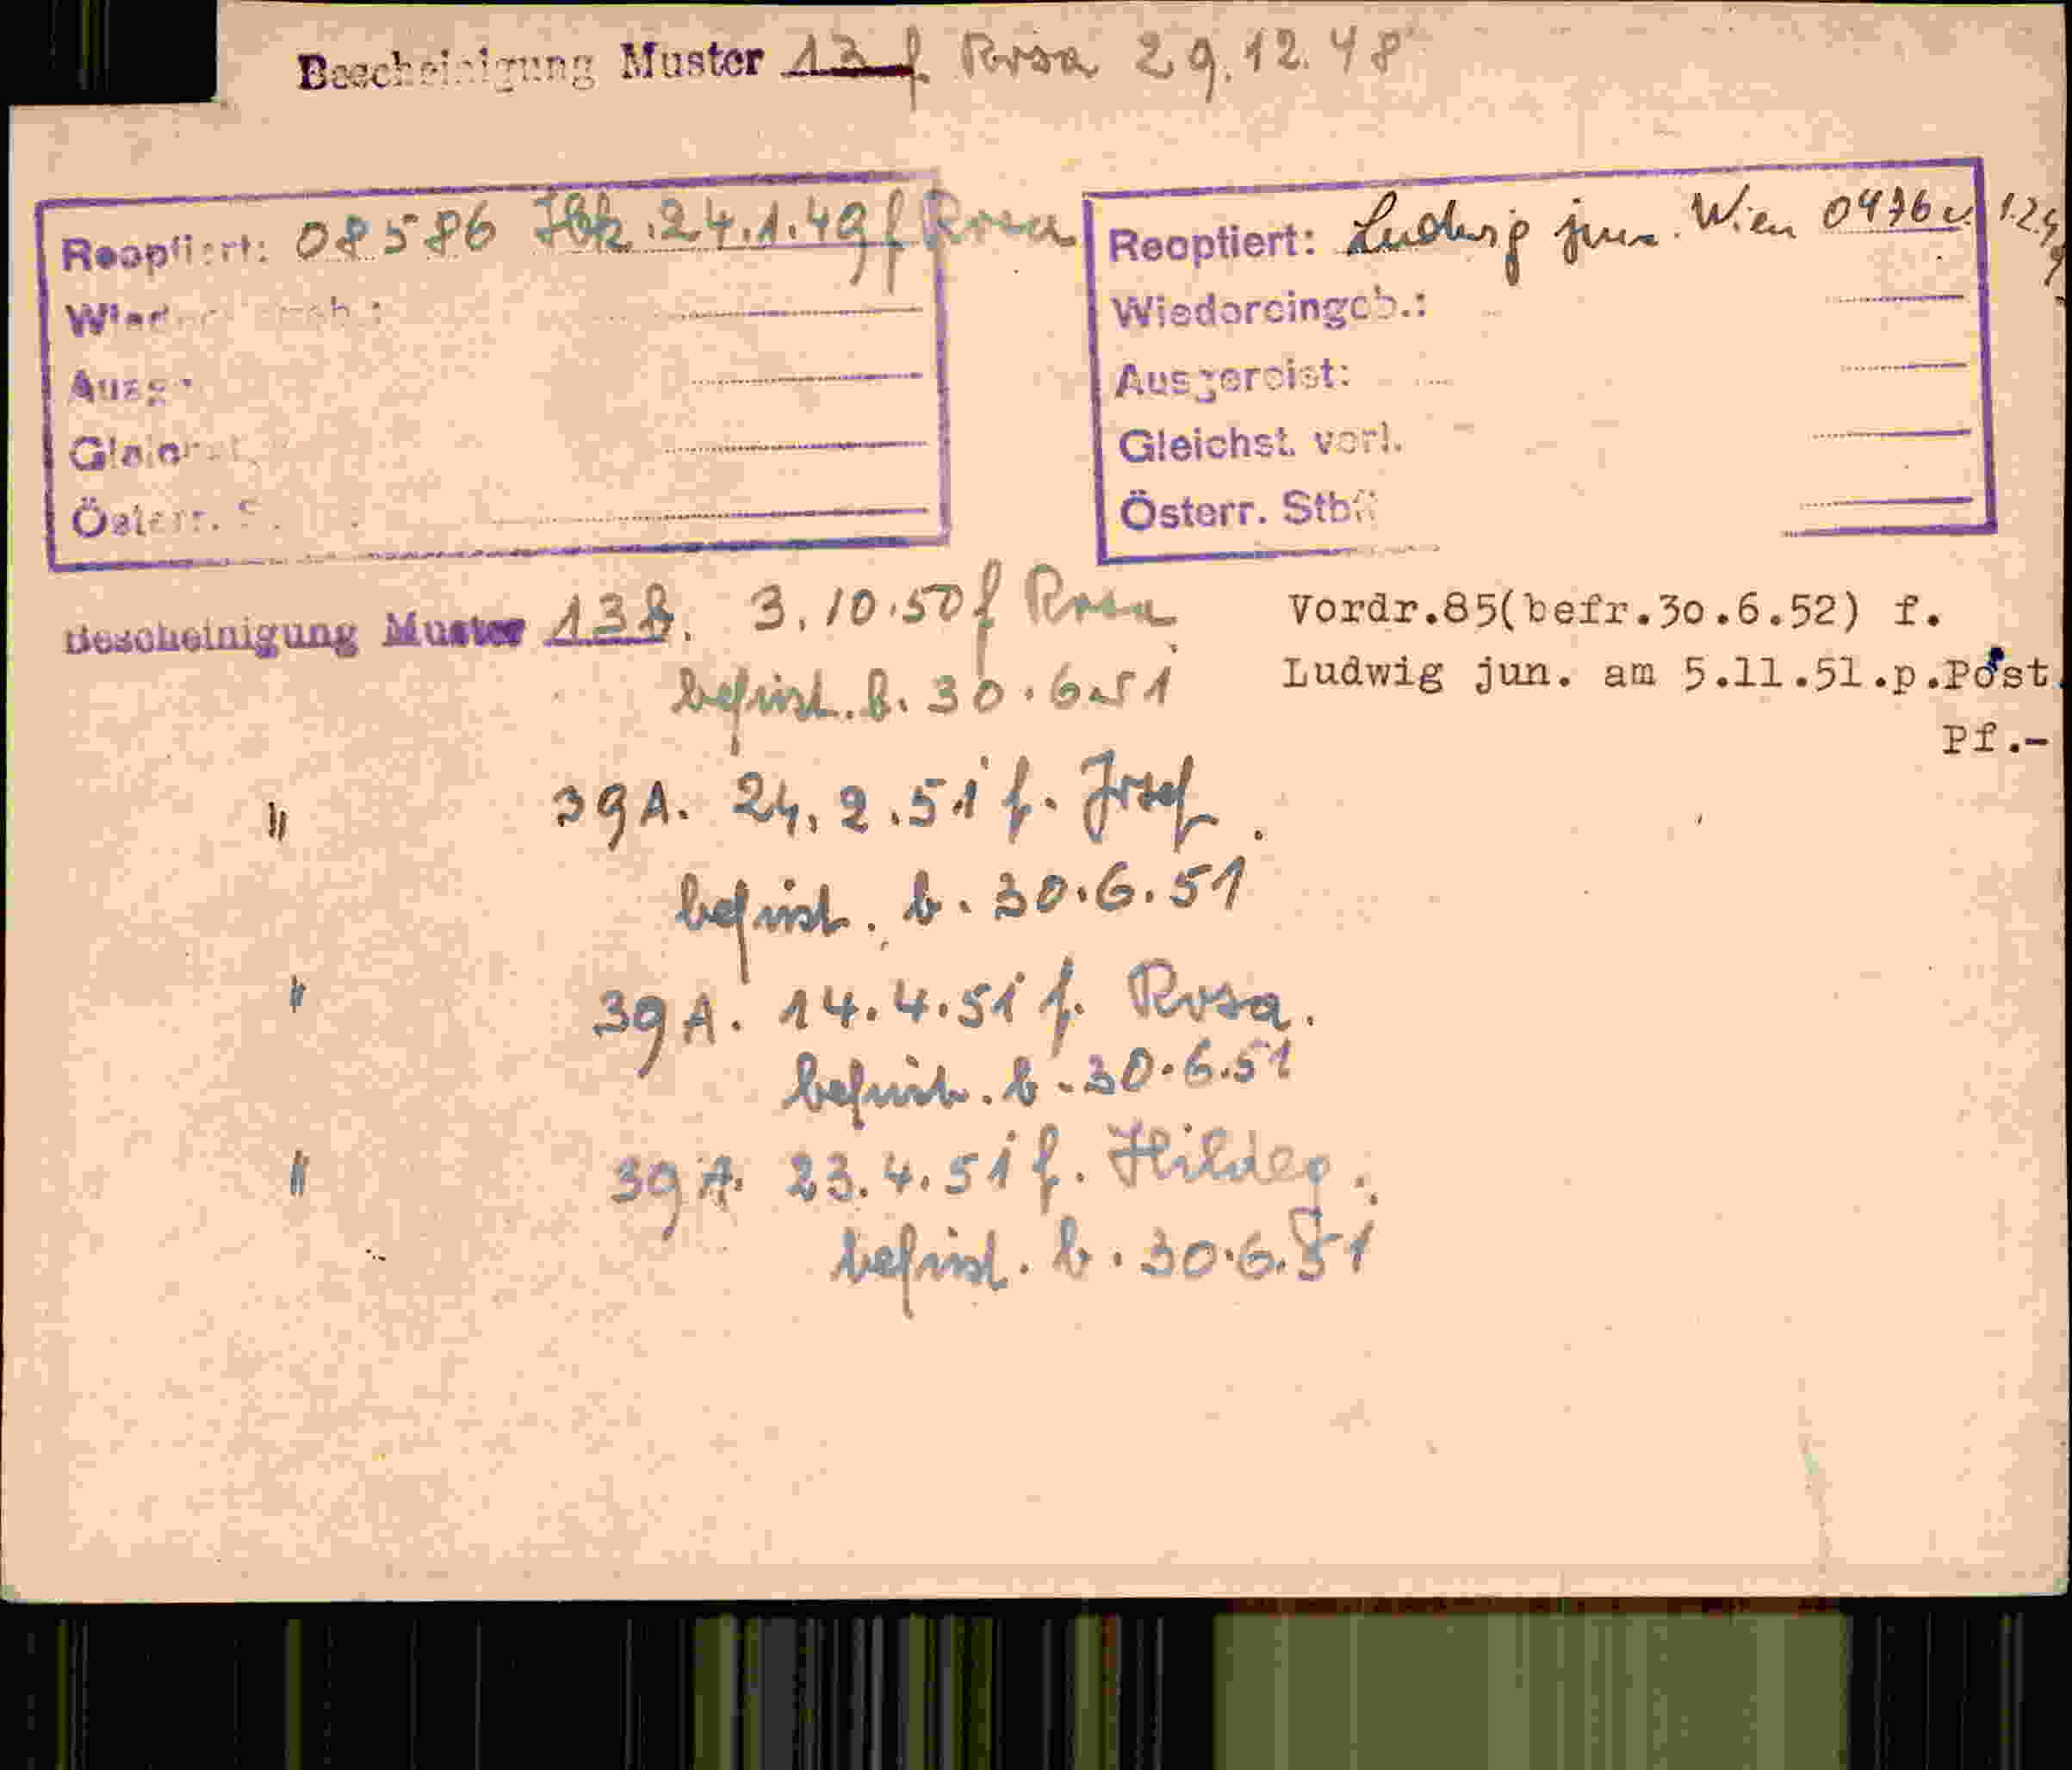 Bescheinigung Muster 13 f. Rosa 29.12.48
Reoptiert: 08586 Ibk. 24.1.49 f Rosa
Österr.
Reoptiert: Ludwig jun. Wien 0476
Wiedereingeb.:
Ausgereist:
Gleichst. verl.
Österr. Stb
Bescheinigung Muster 13 3.10.50 f Rosa
befrist. b. 30.6.51
Vordr.85(befr.30.6.52) f.
Ludwig jun. am 5.11.51.p.Post.
Pf.-
" 39 A. 24.2.51 f. Josef.
befrist. b. 30.6.51
" 39 A. 14.4.51 f. Rosa.
befrist. b. 30.6.51
" 39 A. 23.4.51 f. Hildeg.
befrist. b. 30.6.51